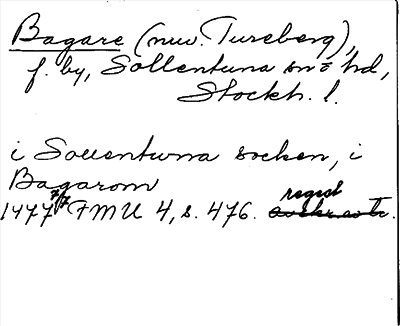 Bagare (nuv. Tureberg),
f. by, Sollentuna sn o hd,
Stockh. l.
i Sollentuna socken, i
Bagarom
1477 7/7 FMU 4, s. 476. regest